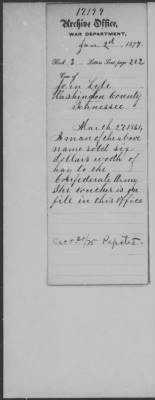 17199
Archive Office,
WAR DEPARTMENT,
Jan 2d, 1879.
Book 3 Letters Sent, page 202
Case of
John Lyle
Washington County
Tennessee
March 27 1864
A man of the above
name sold six
dollars worth of
hay to the
Confederate Army
The voucher is on
file in this Office